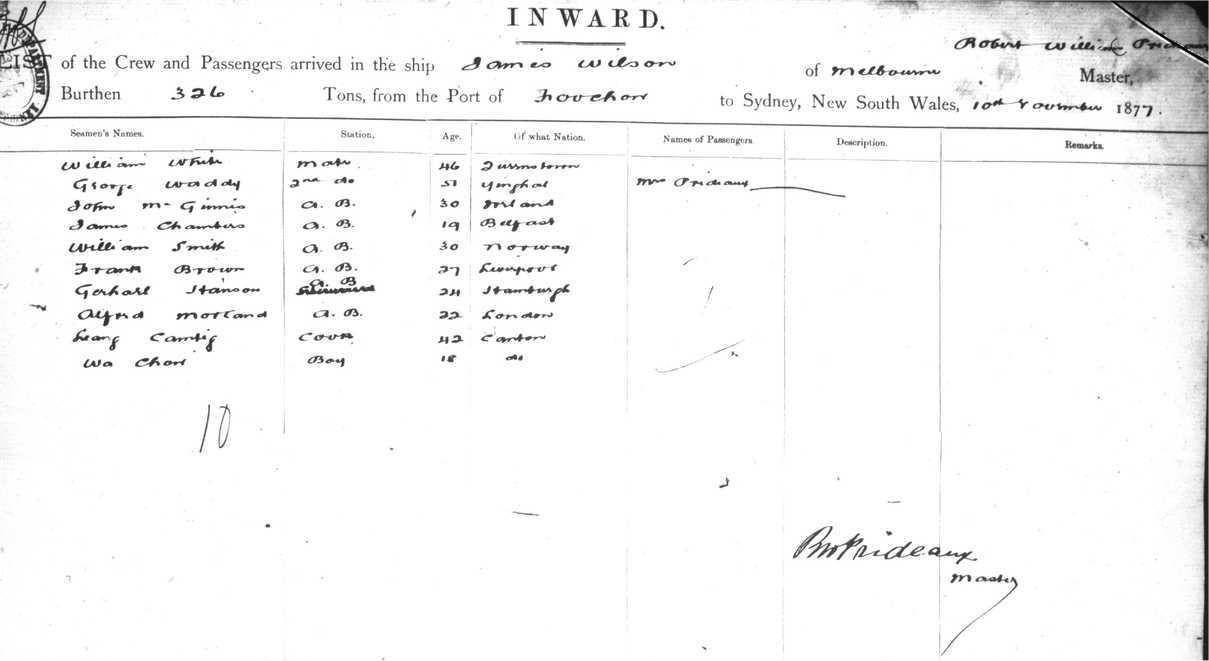 INWARD.
Robert William Prideaux
LIST of the Crew and Passengers arrived in the ship James Wilson of Melbourne Master,
Burthen 326 Tons, from the Port of Foochow to Sydney, New South Wales, 10th November 1877.
Seamen's Names. Station. Age. Of what Nation. Names of Passengers. Description. Remarks.
William White Mate 46
George Waddy 2nd do 51 Mrs Prideaux
John McGinnis A. B. 30 Ireland
James Chambers A. B. 19 Belfast
William Smith A. B. 30 Norway
Frank Brown A. B. 27 Liverpool
Gerhard Hanson A. B 24 Hamburgh
Alfred Morland A. B. 22 London
Cook 42 Canton
Wa Chow Boy 18 do
10
RWPrideaux
Master